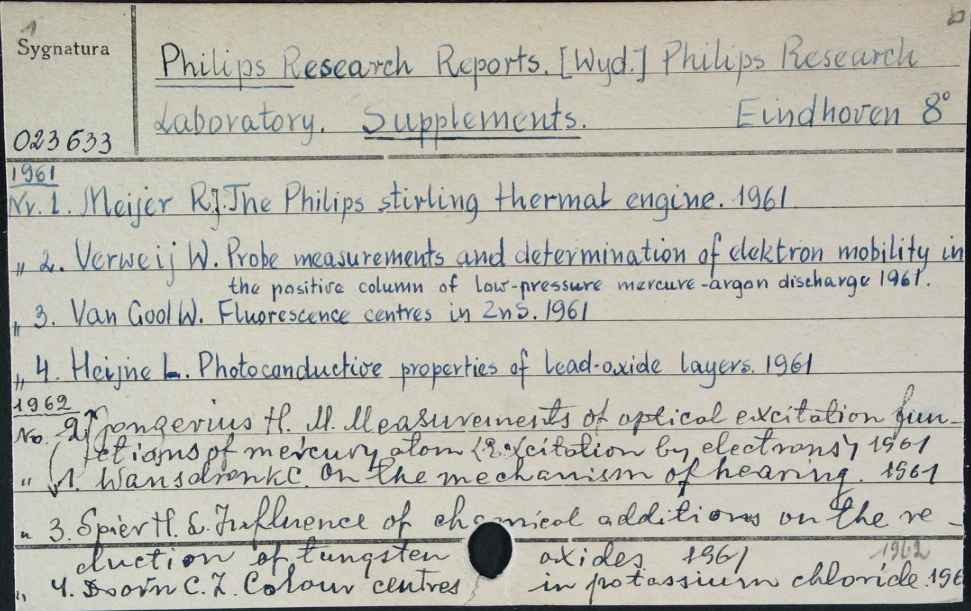 1
Sygnatura
Philips Research Reports. [Wyd.] Philips Research
Laboratory. Supplements. Eindhoven 8°
023633
1961
Nr. 1. Meijer R.J. The Philips stirling thermal engine. 1961
„ 2. Verweij W. Probe measurements and determination of elektron mobility in
the positive column of low-pressure mercure-argon discharge 1961.
„ 3. Van Gool W. Fluorescence centres in ZnS. 1961
„ 4. Heijne L. Photoconductive properties of lead-oxide layers. 1961
1962
No. 2. Jongerius H. M. Measurements of optical excitation fun-
ctions of mercury atom (Excitation by electrons) 1961
„ 1. Wansdronk C. On the mechanism of hearing. 1961
„ 3. Spier H. L. Influence of chemical additions on the re-
duction of tungsten oxides 1961
1962
„ 4. Doorn C. Z. Colour centres in potassium chloride. 196